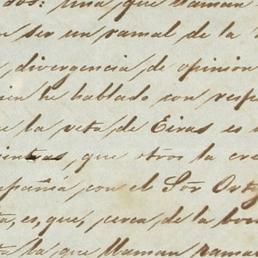 dos: una que llaman
ser un ramal de la
divergencia de opinion
he hablado con respe
la veta de Eiras es
que otros la cre
pañia con el Sõr Orty
es, que, cerca de la boc
la que llaman rama